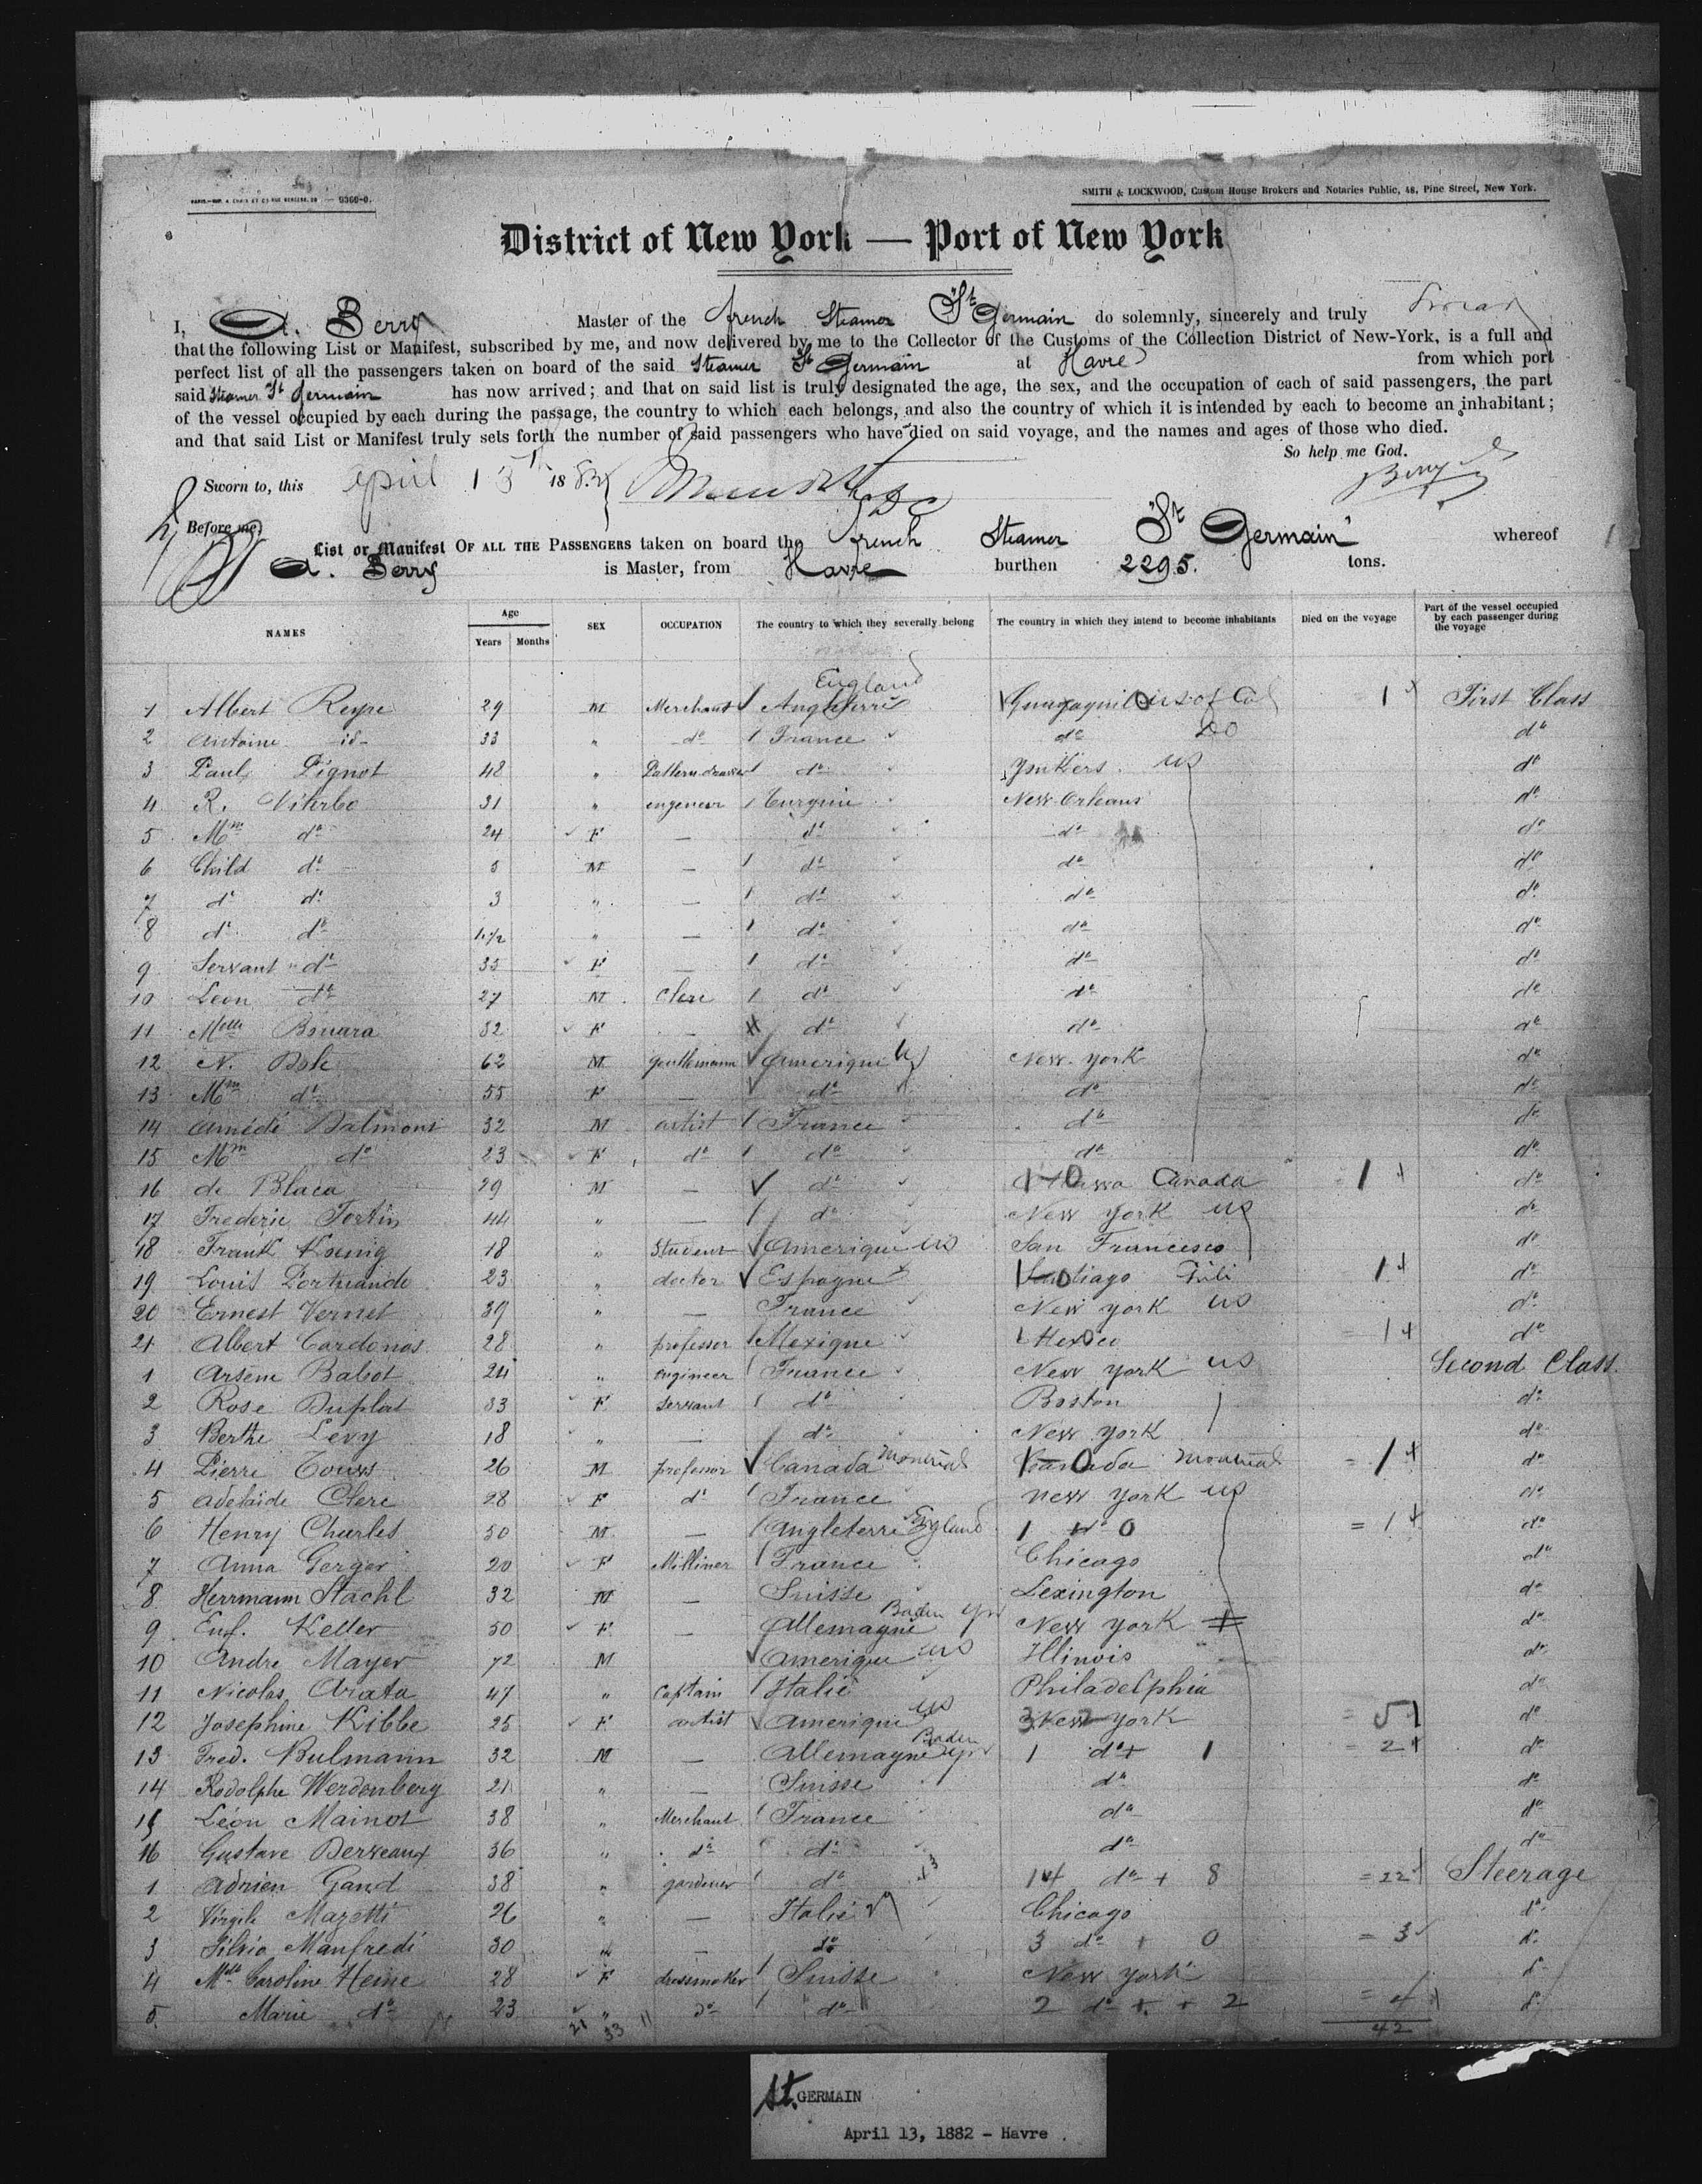 SMITH & LOCKWOOD, Custom House Brokers and Notaries Public, 48, Pine Street, New York.
District of New York — Port of New York
I, A. Berry Master of the french Steamer "St Germain do solemnly, sincerely and truly swear
that the following List or Manifest, subscribed by me, and now delivered by me to the Collector of the Customs of the Collection District of New-York, is a full and
perfect list of all the passengers taken on board of the said Steamer St Germain at Havre from which port
said Steamer St Germain has now arrived; and that on said list is truly designated the age, the sex, and the occupation of each of said passengers, the part
of the vessel occupied by each during the passage, the country to which each belongs, and also the country of which it is intended by each to become an inhabitant;
and that said List or Manifest truly sets forth the number of said passengers who have died on said voyage, and the names and ages of those who died.
So help me God.
Sworn to, this april 13 1882 Berry
Before me,
List or Manifest OF ALL THE PASSENGERS taken on board the french Steamer "St Germain" whereof
A. Berry is Master, from Havre burthen 2295. tons.
NAMES Age Years Months SEX OCCUPATION The country to which they severally belong The country in which they intend to become inhabitants Died on the voyage Part of the vessel occupied by each passenger during the voyage
England
1 Albert Reyre 29 M Merchant Angleterre 1 First Class
2 Antoine id 33 " do France do Do do
3 Paul Pignot 48 " do Yonkers. US do
4 R. Viterbo 31 " engeneer Turquie New Orleans do
5 Mme do 24 F — do do do
6 Child do 5 M — do do do
7 do do 3 " — do do do
8 do do 1 1/2 " — do do do
9 Servant do 35 F — do do do
10 Leon do 27 M Clerc do do do
11 Melle Bonara 32 F — do do do
12 N. Dole 62 M gentlemann Amerique US New-York do
13 Mme do 55 F — do do do
14 Amédé Dalmont 32 M artist France do do
15 Mme do 23 F do do do do
16 de Blaca 29 M — do Canada 1 do
17 Frederic Fortin 44 " — do New York US do
18 Frank Koenig 18 " Student Amerique US San Francisco do
19 Louis Portuando 23 " doctor Espagne Santiago 1 do
20 Ernest Vernet 39 " — France New York US do
21 Albert Cardonas 28 " professor Mexique Mexico 1 do
1 Arsene Babot 24 " engineer France New York US Second Class
2 Rose Duplat 33 F Servant do Boston do
3 Berthe Levy 18 " — do New York do
4 Pierre Tours 26 M professor Canada Montreal Canada Montreal 1 do
5 Adelaide Clerc 28 F do France New York US do
6 Henry Charles 50 M — Angleterre England 1 do 0 = 1 do
7 Anna Gerger 20 F Milliner France Chicago do
8 Herrmann Stachl 32 M — Suisse Lexington do
9 Euf. Keller 50 F — Allemagne Baden New York do
10 Andre Mayer 72 M Amerique US Illinois do
11 Nicolas Arata 47 " Captain Italie Philadelphia do
12 Josephine Kibbe 25 F artist Amerique US New York = 5 do
13 Fred. Bulmann 32 M — Allemagne Baden 1 do + 1 = 2 do
14 Rodolphe Werdenberg 21 " — Suisse do do
15 Léon Mainot 38 " Merchant France do do
16 Gustave Derveaux 36 " do do do do
1 Adrien Gand 38 " gardener do 14 do + 8 = 22 Steerage
2 Virgile Mazetti 26 " — Italie Chicago do
3 Silvio Manfredi 30 " — do 3 do + 0 = 3 do
4 Melle Caroline Heine 28 F dressmaker Suisse New York do
5 Marie do 23 " do do 2 do + 2 = 4 do
21 33 11 42
St. GERMAIN
April 13, 1882 - Havre